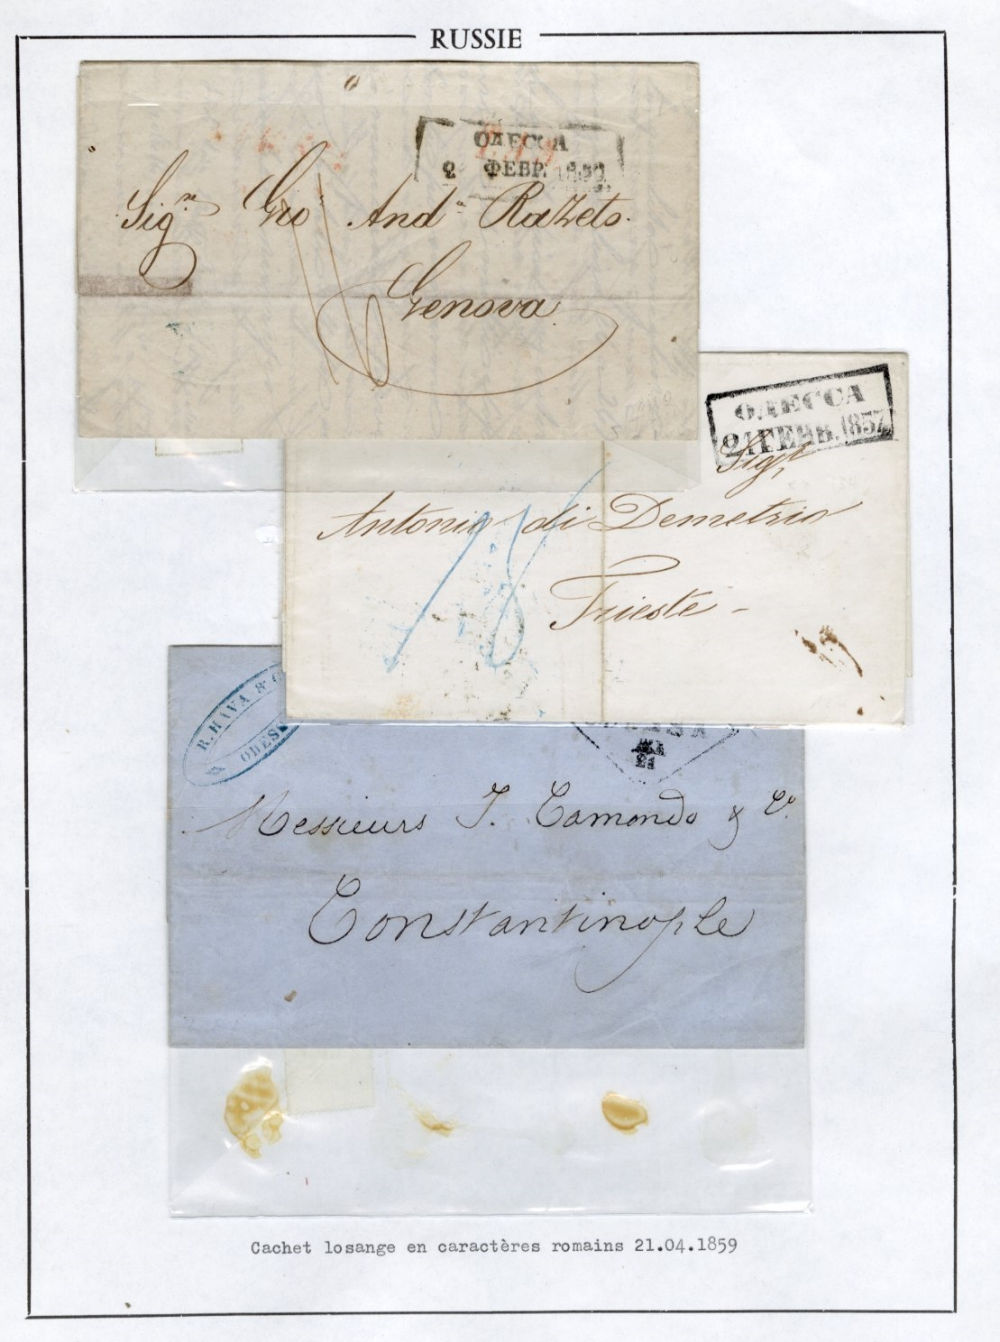 RUSSIE
ОДЕССА
2 ФЕВР.
Sig.re Gio And.a Razeto
Genova
ОДЕССА
1857
Sig.r
Antonio di Demetrio
Trieste
R. HAVA & C
ODESS
21
Messieurs J. Camondo & Co.
Constantinople
Cachet losange en caractères romains 21.04.1859